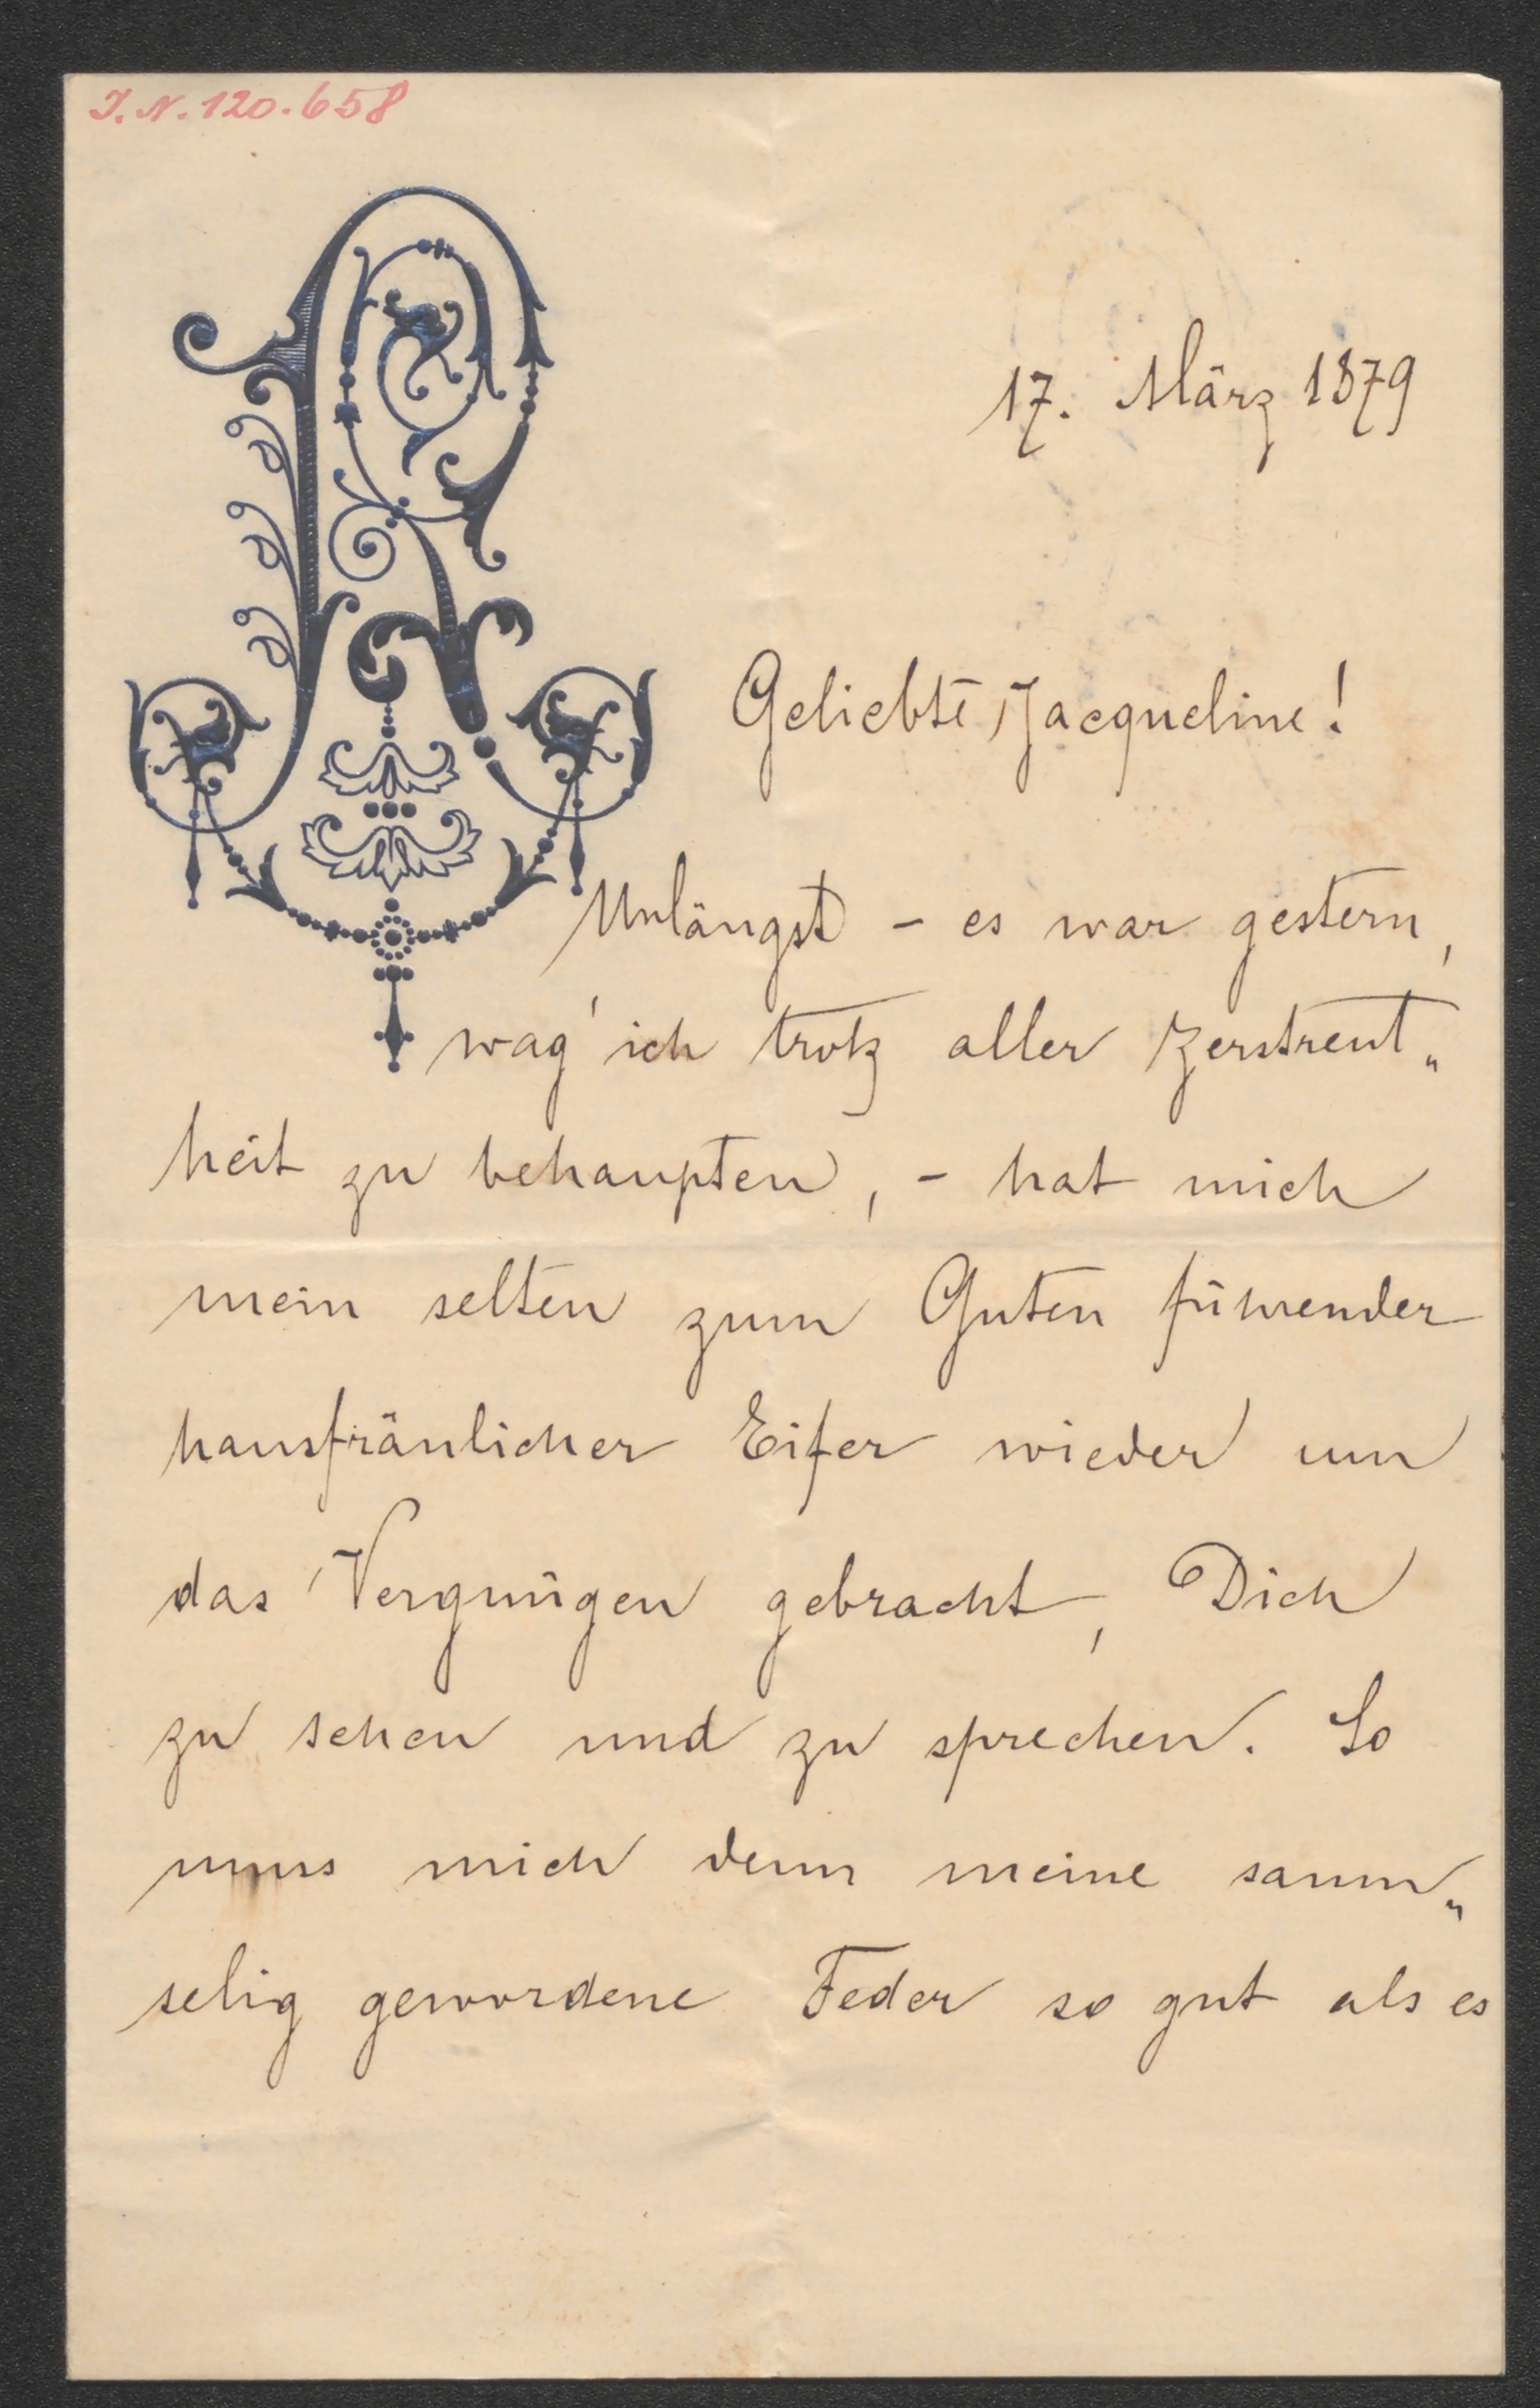 I.N. 120.658
17. März 1879
Geliebte Jacqueline!
Unlängst - es war gestern,
wag' ich trotz aller Zerstreut„
heit zu behaupten, - hat mich
mein selten zum Guten führender
hausfräulicher Eifer wieder um
das Vergnügen gebracht, Dich
zu sehen und zu sprechen. So
muss mich denn meine saum„
selig gewordene Feder so gut als es